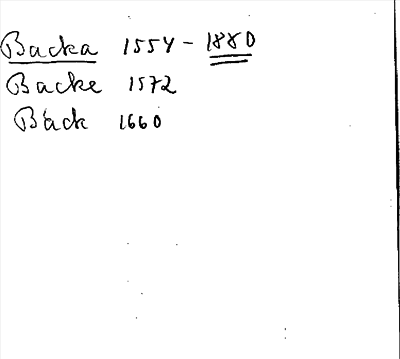 Backa 1554 - 1880
Backe 1572
Back 1660